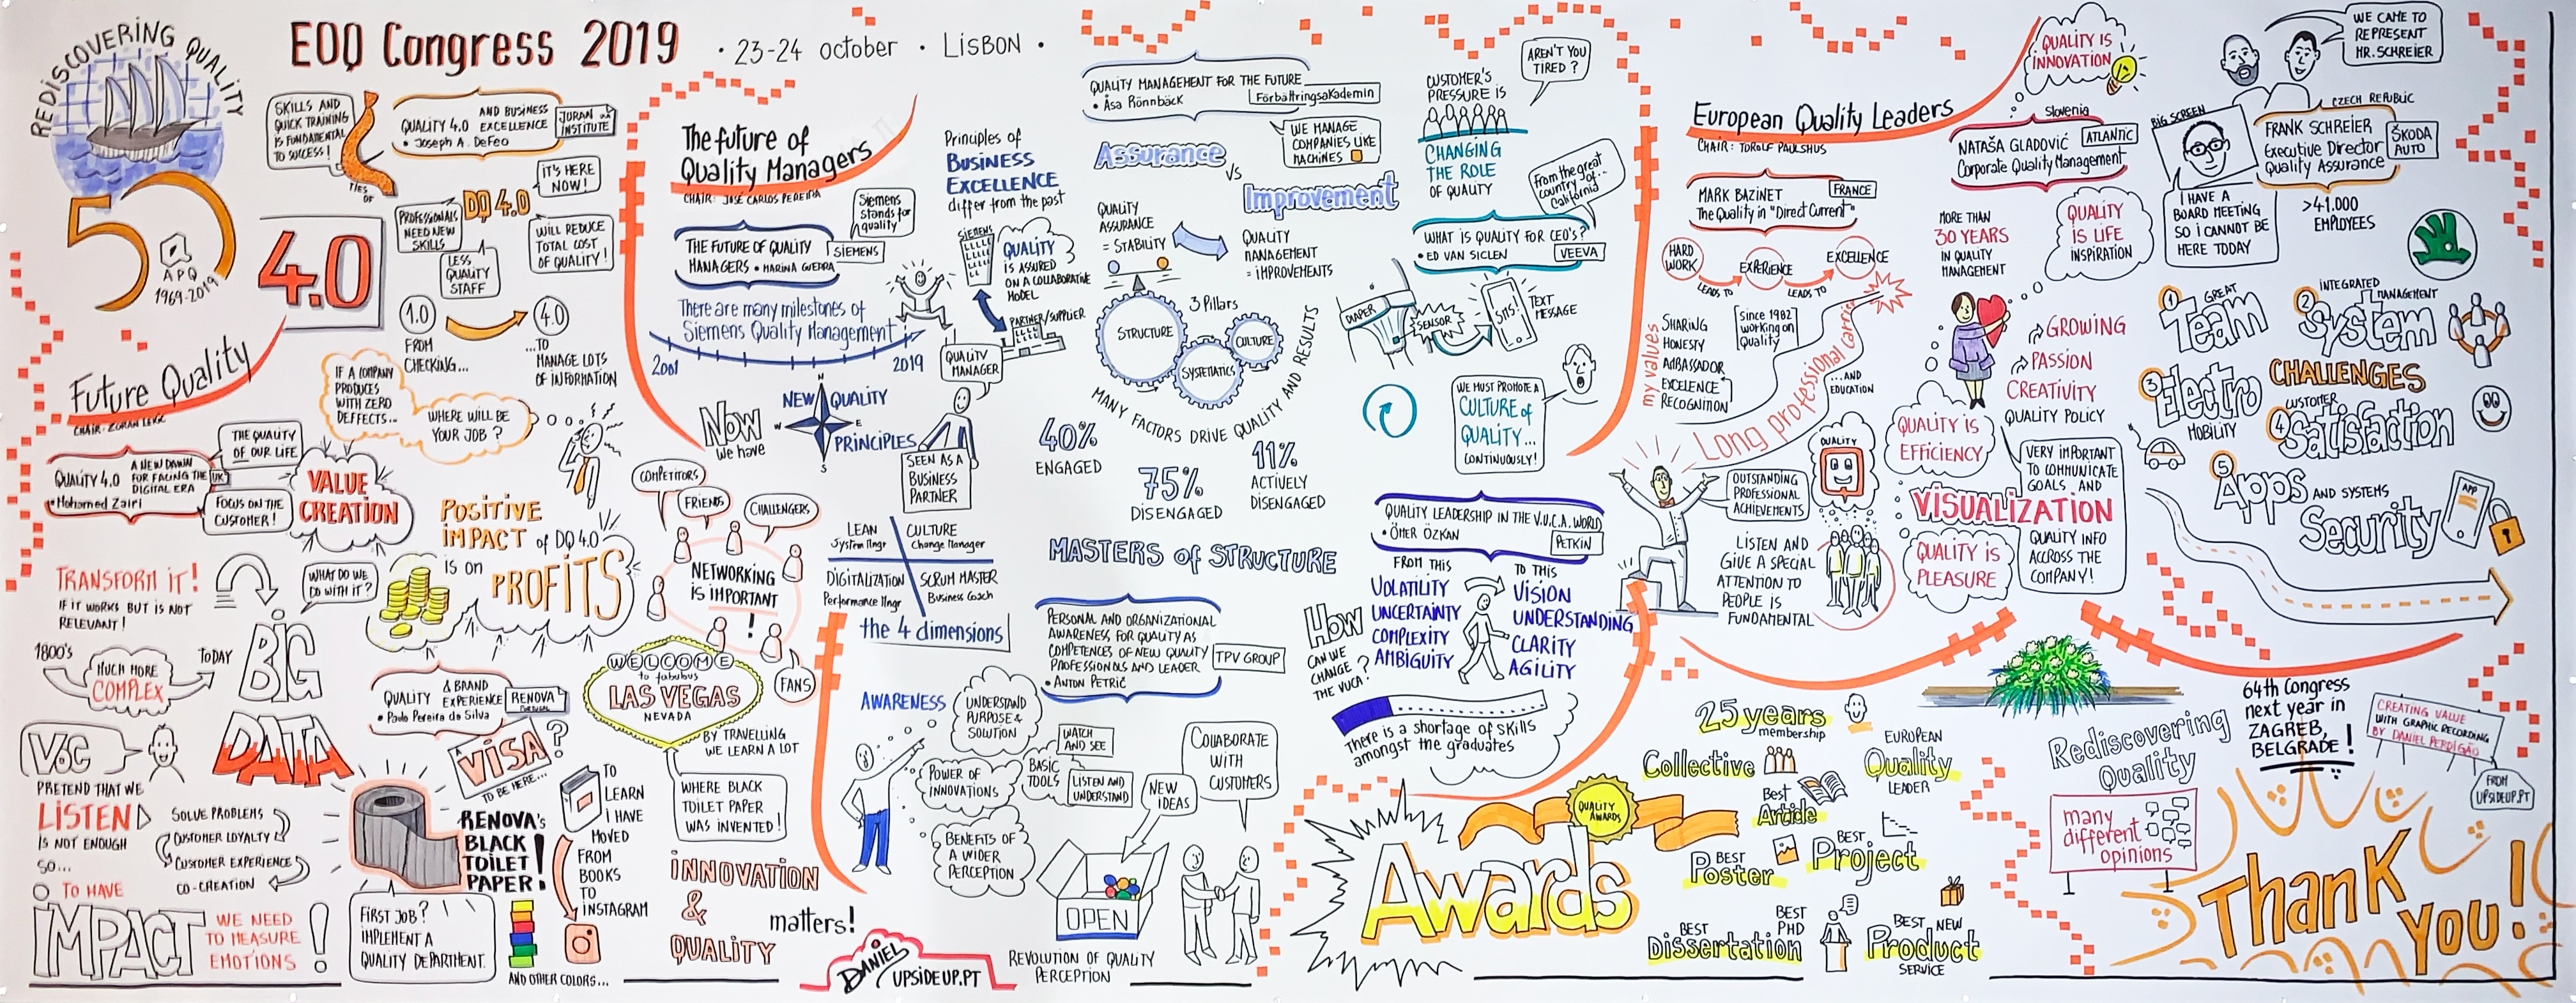 REDISCOVERING QUALITY
EOQ Congress 2019
• 23-24 october • LISBON •
50
APQ
1969-2019
4.0
Future Quality
SKILLS AND
QUICK TRAINING
IS FUNDAMENTAL
TO SUCCESS!
TIES
OF
AND BUSINESS
QUALITY 4.0 EXCELLENCE
• Joseph A. DeFeo
JURAN
INSTITUTE
IT'S HERE
NOW!
PROFESSIONALS
NEED NEW
SKILLS
DQ 4.0
LESS
QUALITY
STAFF
WILL REDUCE
TOTAL COST
OF QUALITY!
1.0
FROM
CHECKING...
4.0
...TO
MANAGE LOTS
OF INFORMATION
IF A COMPANY
PRODUCES
WITH ZERO
DEFFECTS...
WHERE WILL BE
YOUR JOB?
A NEW DAWN
QUALITY 4.0 FOR FACING THE
DIGITAL ERA
UK
• Mohamed Zairi
THE QUALITY
OF OUR LIFE
FOCUS ON THE
CUSTOMER!
VALUE
CREATION
POSITIVE
IMPACT of DQ 4.0
is on PROFITS
TRANSFORM IT!
IF IT WORKS BUT IS NOT
RELEVANT!
1800's
MUCH MORE
COMPLEX
TODAY
WHAT DO WE
DO WITH IT?
BIG
DATA
VOC
PRETEND THAT WE
LISTEN
IS NOT ENOUGH
SO...
TO HAVE
IMPACT
WE NEED
TO MEASURE
EMOTIONS
!
SOLVE PROBLEMS
CUSTOMER LOYALTY
CUSTOMER EXPERIENCE
CO-CREATION
QUALITY & BRAND
EXPERIENCE
• Paulo Pereira da Silva
RENOVA
PORTUGAL
VISA?
TO BE HERE...
RENOVA's
BLACK
TOILET
PAPER!
FIRST JOB?
IMPLEMENT A
QUALITY DEPARTMENT.
AND OTHER COLORS...
TO
LEARN
I HAVE
MOVED
FROM
BOOKS
TO
INSTAGRAM
WELCOME
to fabulous
LAS VEGAS
NEVADA
BY TRAVELLING
WE LEARN A LOT
WHERE BLACK
TOILET PAPER
WAS INVENTED!
INNOVATION
&
QUALITY
matters!
The future of
Quality Managers
CHAIR: JOSÉ CARLOS PEREIRA
THE FUTURE OF QUALITY
MANAGERS • MARINA GUERRA
SIEMENS
Siemens
stands for
quality
There are many milestones of
Siemens Quality Management
2001
2019
Now
we have
NEW QUALITY
PRINCIPLES
N
W
E
S
Principles of
BUSINESS
EXCELLENCE
differ from the past
SIEMENS
QUALITY
IS ASSURED
ON A COLLABORATIVE
MODEL
PARTNER/SUPPLIER
QUALITY
MANAGER
SEEN AS A
BUSINESS
PARTNER
COMPETITORS
FRIENDS
CHALLENGERS
NETWORKING
IS IMPORTANT
!
FANS
LEAN
System Mngr
CULTURE
Change Manager
DIGITALIZATION
Performance Mngr
SCRUM MASTER
Business Coach
the 4 dimensions
QUALITY MANAGEMENT FOR THE FUTURE
• Åsa Rönnbäck
Förbättringsakademin
Assurance
VS
Improvement
WE MANAGE
COMPANIES LIKE
MACHINES
QUALITY
ASSURANCE
= STABILITY
QUALITY
MANAGEMENT
= IMPROVEMENTS
3 Pillars
STRUCTURE
SYSTEMATICS
CULTURE
MANY FACTORS DRIVE QUALITY AND RESULTS
40%
ENGAGED
75%
DISENGAGED
11%
ACTIVELY
DISENGAGED
MASTERS of STRUCTURE
PERSONAL AND ORGANIZATIONAL
AWARENESS FOR QUALITY AS
COMPETENCES OF NEW QUALITY
PROFESSIONALS AND LEADER
• ANTON PETRIČ
TPV GROUP
AWARENESS
UNDERSTAND
PURPOSE &
SOLUTION
POWER OF
INNOVATIONS
BENEFITS OF
A WIDER
PERCEPTION
BASIC
TOOLS
WATCH
AND SEE
LISTEN AND
UNDERSTAND
NEW
IDEAS
COLLABORATE
WITH
CUSTOMERS
OPEN
REVOLUTION OF QUALITY
PERCEPTION
DANIEL
UPSIDEUP.PT
CUSTOMER'S
PRESSURE IS
CHANGING
THE ROLE
OF QUALITY
AREN'T YOU
TIRED?
From the great
country of...
California
WHAT IS QUALITY FOR CEO's?
• ED VAN SICLEN
VEEVA
DIAPER
SENSOR
SMS!
TEXT
MESSAGE
WE MUST PROMOTE A
CULTURE of
QUALITY...
CONTINUOUSLY!
QUALITY LEADERSHIP IN THE V.U.C.A. WORLD
• ÖMER ÖZKAN
PETKIN
HOW
CAN WE
CHANGE
THE VUCA?
FROM THIS
VOLATILITY
UNCERTAINTY
COMPLEXITY
AMBIGUITY
TO THIS
VISION
UNDERSTANDING
CLARITY
AGILITY
There is a shortage of skills
amongst the graduates
European Quality Leaders
CHAIR: TOROLF PAULSHUS
MARK BAZINET
The Quality in "Direct Current"
FRANCE
HARD
WORK
LEADS TO
EXPERIENCE
LEADS TO
EXCELLENCE
my values
SHARING
HONESTY
AMBASSADOR
EXCELENCE
RECOGNITION
Since 1982
working on
Quality
Long professional career
...AND
EDUCATION
OUTSTANDING
PROFESSIONAL
ACHIEVEMENTS
QUALITY
LISTEN AND
GIVE A SPECIAL
ATTENTION TO
PEOPLE IS
FUNDAMENTAL
QUALITY IS
INNOVATION
Slovenia
NATAŠA GLADOVIĆ
Corporate Quality Management
ATLANTIC
MORE THAN
30 YEARS
IN QUALITY
MANAGEMENT
QUALITY
IS LIFE
INSPIRATION
GROWING
PASSION
CREATIVITY
QUALITY POLICY
QUALITY IS
EFFICIENCY
VISUALIZATION
QUALITY IS
PLEASURE
VERY IMPORTANT
TO COMMUNICATE
GOALS AND
QUALITY INFO
ACCROSS THE
COMPANY!
WE CAME TO
REPRESENT
MR. SCHREIER
BIG SCREEN
CZECH REPUBLIC
FRANK SCHREIER
Executive Director
Quality Assurance
ŠKODA
AUTO
I HAVE A
BOARD MEETING
SO I CANNOT BE
HERE TODAY
>41.000
EMPLOYEES
1 GREAT
Team
2 INTEGRATED
MANAGEMENT
System
CHALLENGES
3 Electro
MOBILITY
4 CUSTOMER
Satisfaction
5 Apps AND SYSTEMS
Security
APP
Awards
QUALITY
AWARDS
25 years
membership
Collective
EUROPEAN
Quality
LEADER
Best
Article
BEST
Poster
BEST
Project
BEST
PHD
Dissertation
BEST NEW
Product
SERVICE
Rediscovering
Quality
many
different
opinions
64th Congress
next year in
ZAGREB,
BELGRADE!
CREATING VALUE
WITH GRAPHIC RECORDING
BY DANIEL PERDIGÃO
FROM
UPSIDEUP.PT
Thank
YOU!